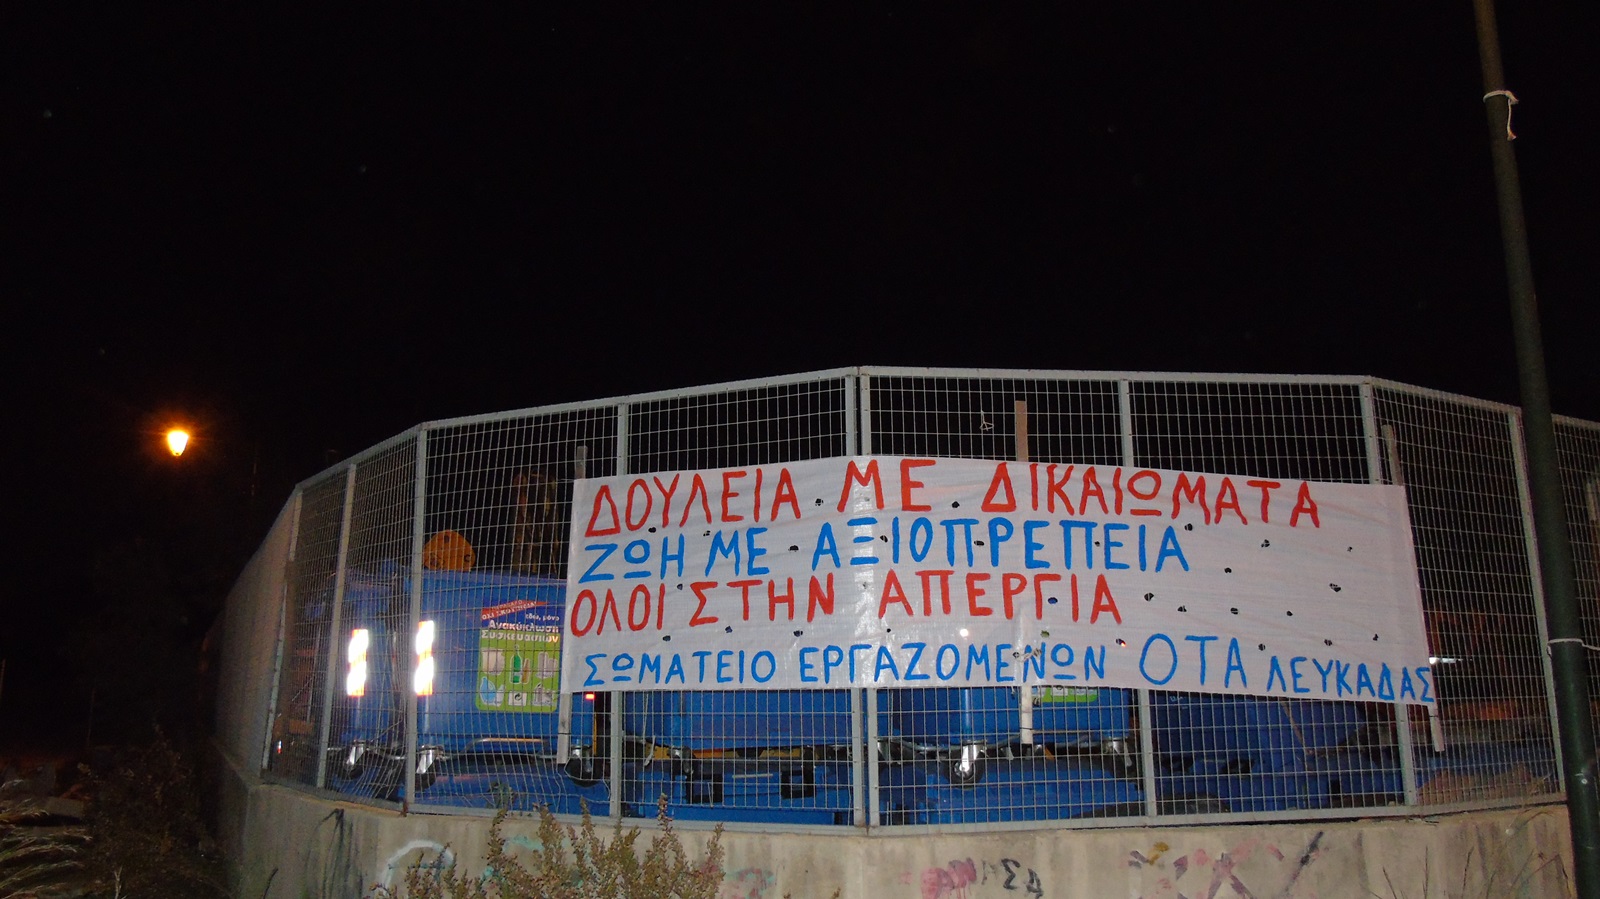 ΔΟΥΛΕΙΑ ΜΕ ΔΙΚΑΙΩΜΑΤΑ
ΖΩΗ ΜΕ ΑΞΙΟΠΡΕΠΕΙΑ
ΟΛΟΙ ΣΤΗΝ ΑΠΕΡΓΙΑ
ΣΩΜΑΤΕΙΟ ΕΡΓΑΖΟΜΕΝΩΝ ΟΤΑ ΛΕΥΚΑΔΑΣ
Ανακύκλωση
Συσκευασιών